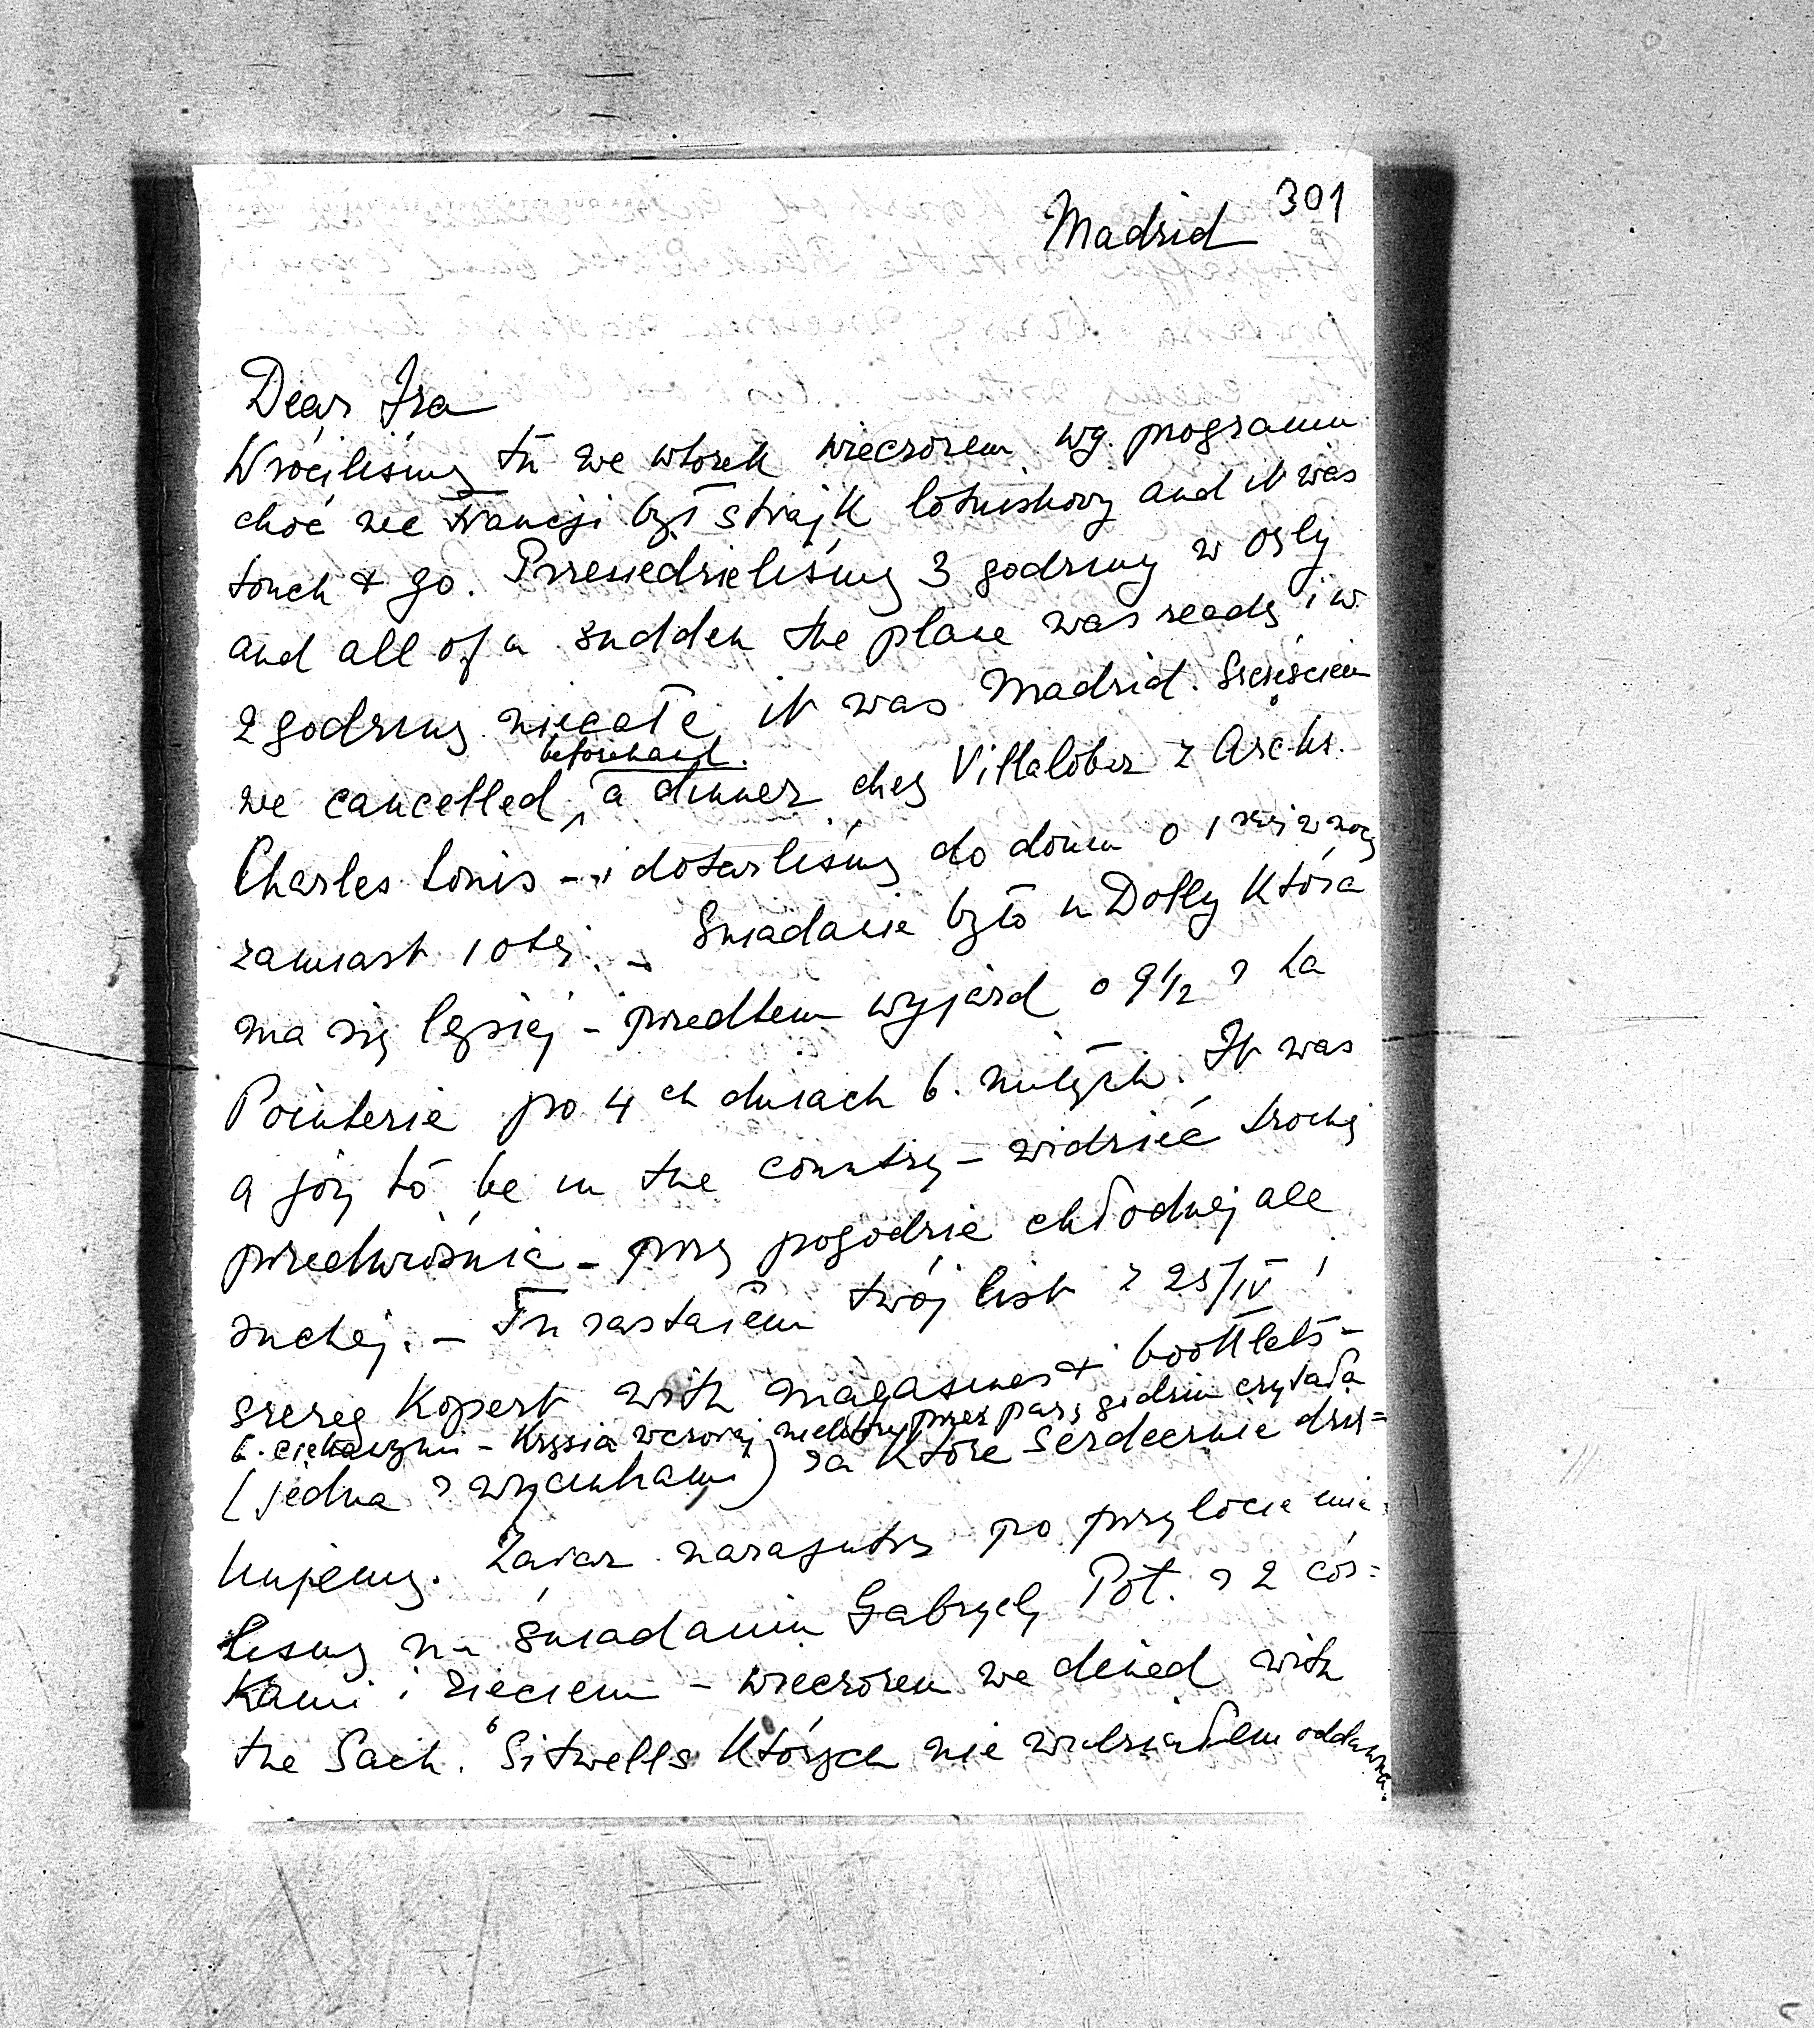 301
Madrid
Dear Ira
Wróciliśmy tu we wtorek wieczorem wg. programu
choć we Francji był strajk lotniskowy and it was
touch & go. Przesiedzieliśmy 3 godziny w Orly
and all of a sudden the plane was ready i w
2 godziny niecałe it was Madrid. Szczęściem
beforehand.
we cancelled a dinner chez Villalobar z Archs.
Charles Louis – i dotarliśmy do domu o 1 szej w nocy
zamiast 10tej. – Śniadanie było u Dolly która
ma się lepiej – przedtem wyjazd o 9½ z La
Pointerie po 4 ch dniach b. miłych. It was
a joy to be in the country – widzieć trochę
przedwiośnia – przy pogodzie chłodnej ale
suchej. – Tu zastałem twój list z 25/IV i
szereg kopert with magasines & booklets –
b. ciekawymi – Krysia wczoraj przez parę godzin czytała
(jedna z wycinkami) za które serdecznie dzię=
kujemy. Zaraz nazajutrz po przylocie mie=
liśmy na śniadaniu Gabryelę Pot. z 2 cór=
kami i zięciem – wieczorem we dined with
the Sach. Sitwells których nie widziałem oddawna.